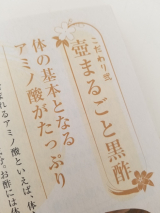 こだわり三
壺まるごと黒酢
体の基本となる
アミノ酸がたっぷり
アミノ酸といえば、体
お酢には体